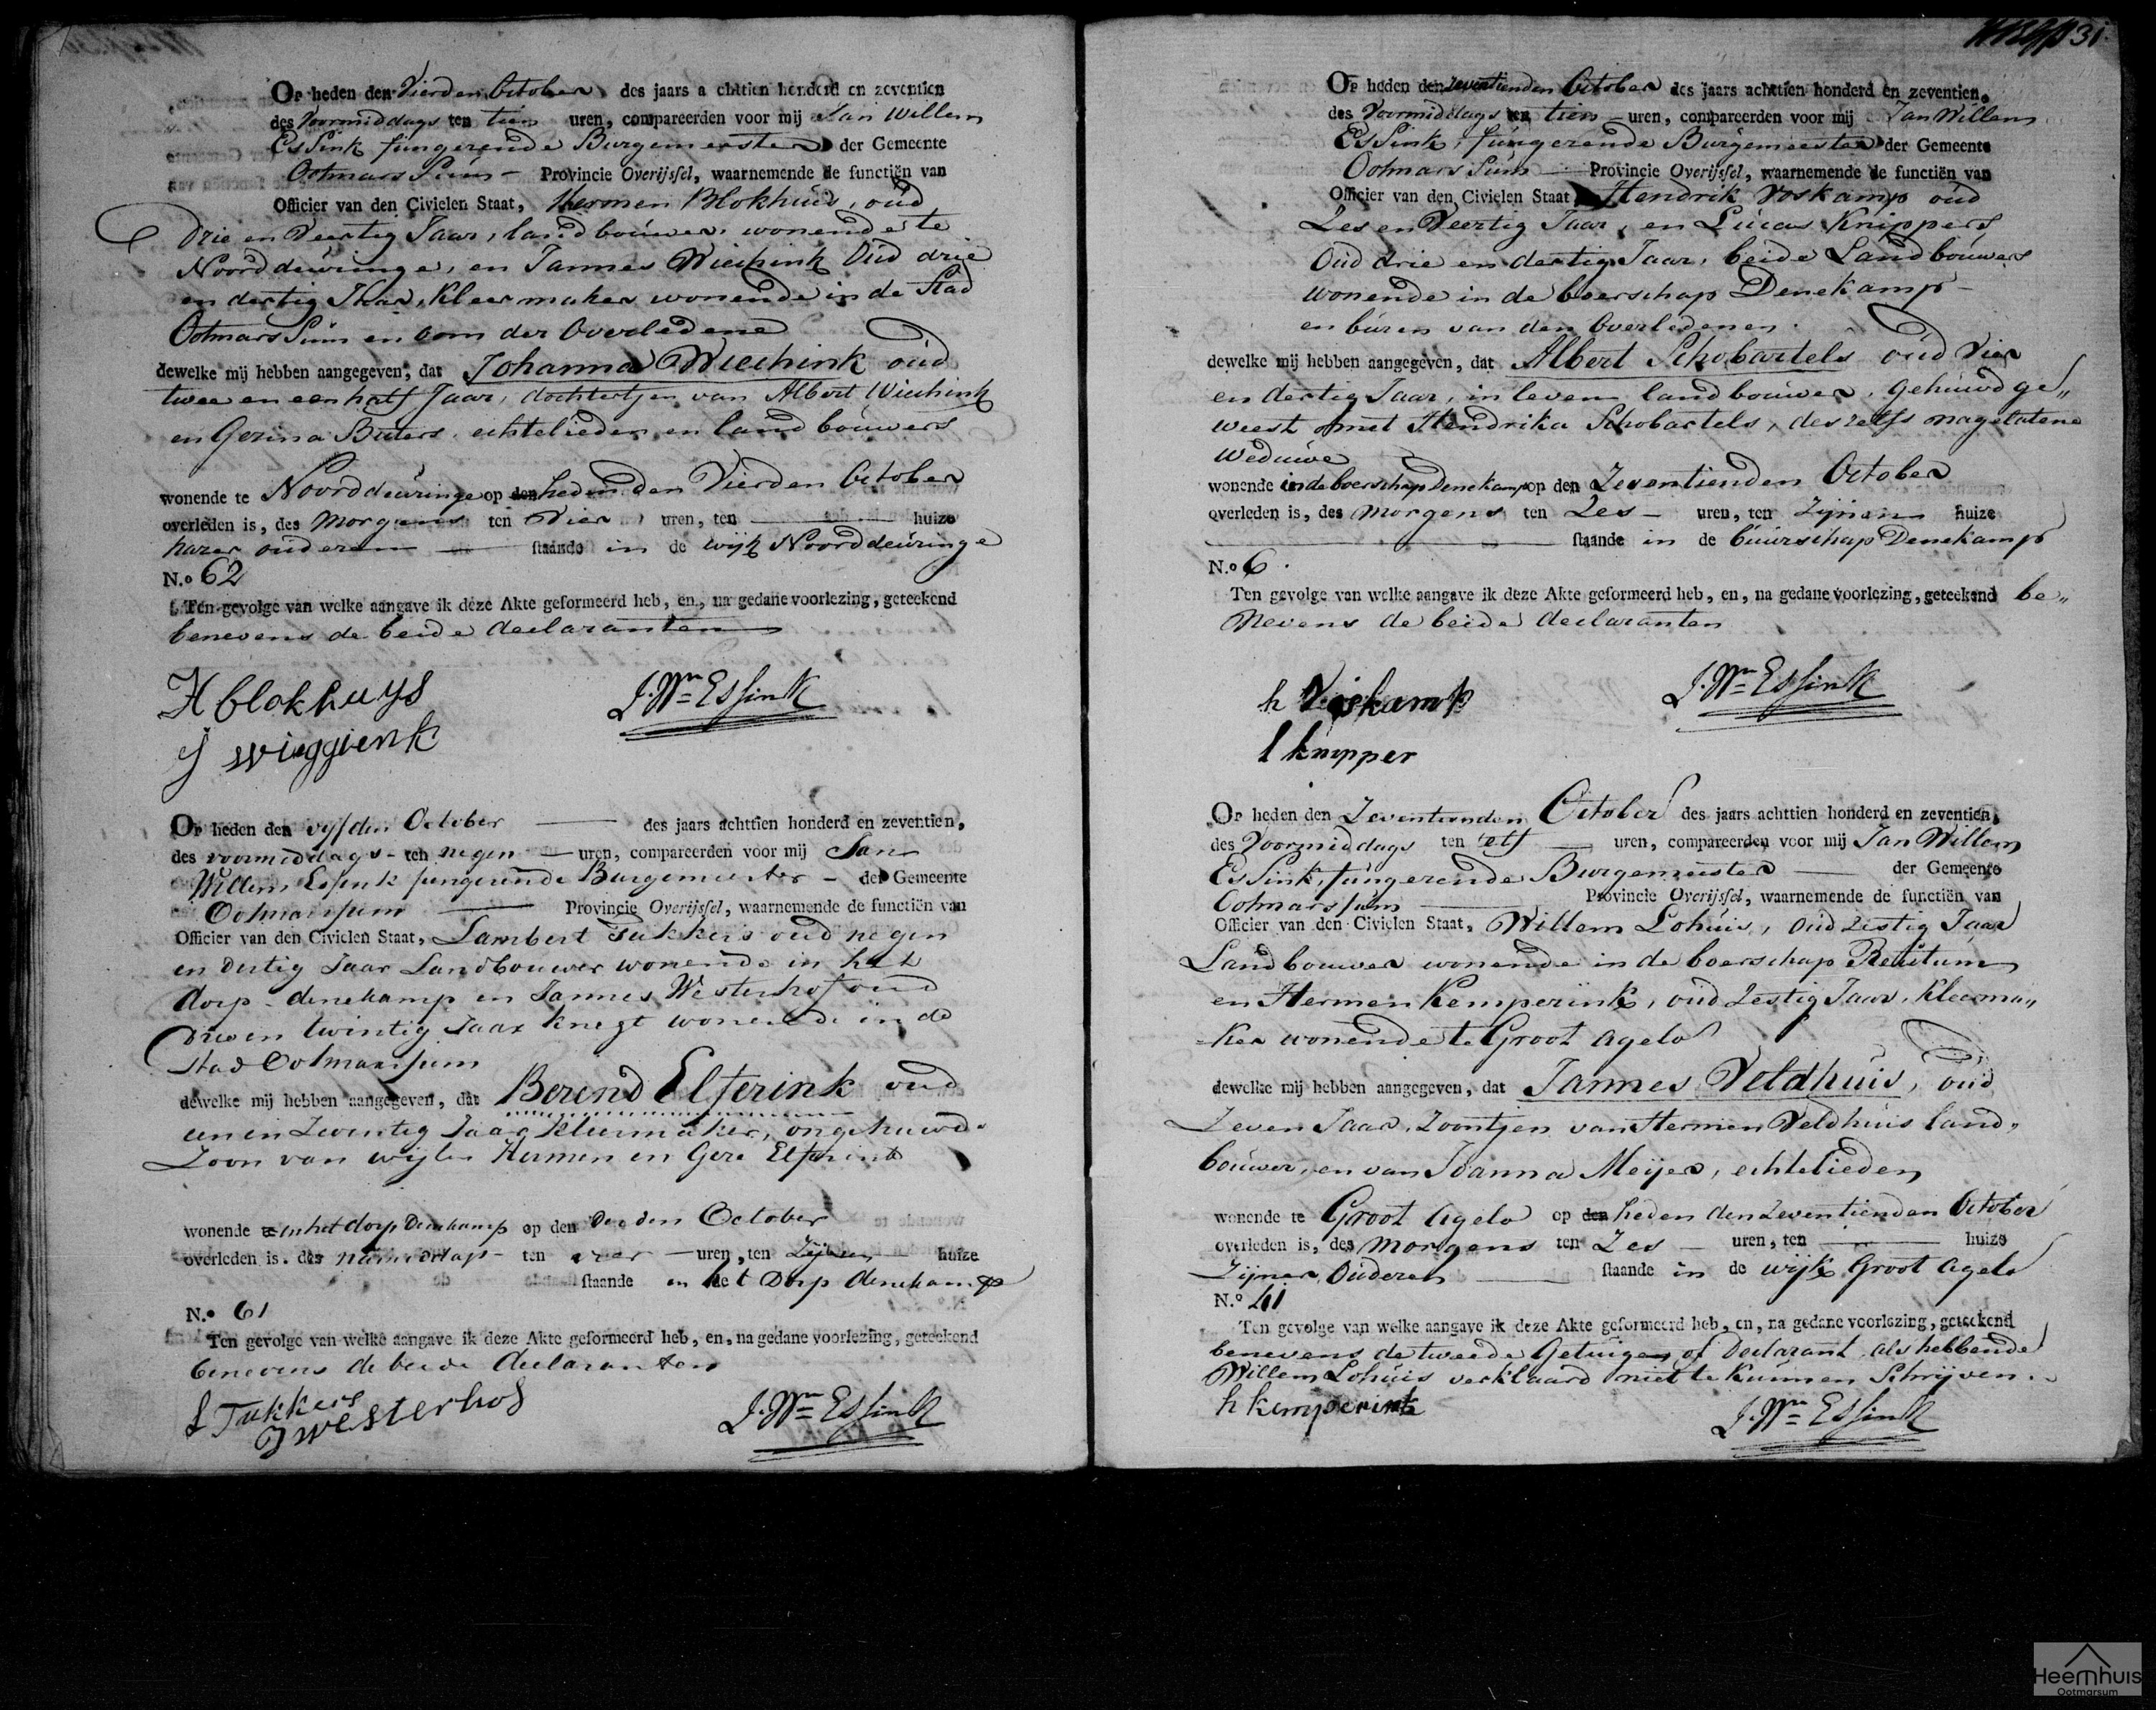 Op heden den Vierden October des jaars a chttien honderd en zeventien
des Voormiddags ten tien uren, compareerden voor mij Jan Willem
Essink fungerende Burgemeester der Gemeente
OotmarsSum – Provincie Overijssel, waarnemende de functiën van
Officier van den Civielen Staat, Hermen Blokhuis, oud
Drie en Veertig Jaar, landbouwer, wonende te
Noorddeuringe, en Jannes Wiechink Oud drie
en dertig Jaar, Kleermaker wonende in de Stad
OotmarsSum en oom der Overledene
dewelke mij hebben aangegeven, dat Johanna Wiechink oud
twee en een half Jaar, dochtertjen van Albert Wiechink
en Gezina Buters, echtelieden en landbouwers
wonende te Noorddeuringe op den heden den Vierden October
overleden is, des Morgens ten Vier uren, ten huize
harer ouderen staande in de wijk Noorddeuringe
N.o 62
Ten gevolge van welke aangave ik deze Akte geformeerd heb, en, na gedane voorlezing, geteekend
benevens de beide declaranten
H blokhuys
J. Wm Essink
J wieggienk
Op heden den vyfden October des jaars achttien honderd en zeventien,
des voormiddags – ten negen – uren, compareerden voor mij Jan
Willem Essink fungerende Burgemeester – der Gemeente
Ootmarssum Provincie Overijssel, waarnemende de functiën van
Officier van den Civielen Staat, Lambert Tukkers oud negen
en Dertig Jaar Landbouwer wonende in het
dorp denekamp en Jannes Westerhof oud
Drie en twintig Jaar knegt wonende in de
stad Ootmarssum
dewelke mij hebben aangegeven, dat Berend Elferink oud
een en Zeventig Jaar kleermaker, ongehuwd
Zoon van wijlen Hermen en Gere Elferink
wonende te in het dorp Denekamp op den Derden October
overleden is, des namiddags – ten vier – uren, ten Zijnen huize
staande in het Dorp denekamp
N.o 61
Ten gevolge van welke aangave ik deze Akte geformeerd heb, en, na gedane voorlezing, geteekend
benevens de beide declaranten
L Tukkers
J westerhof
J. Wm Essink
31.
Op heden den zeventienden October des jaars achttien honderd en zeventien,
des Voormiddags ten tien – uren, compareerden voor mij Jan Willem
EsSink, fungerende Burgemeester der Gemeente
OotmarsSum Provincie Overijssel, waarnemende de functiën van
Officier van den Civielen Staat Hendrik Voskamp oud
Zes en Veertig Jaar, en Lucas Knippers
Oud drie en dertig Jaar, beide Landbouwers
wonende in de boerschap Denekamp –
en buren van den Overledenen.
dewelke mij hebben aangegeven, dat Albert Schobartels oud Vier
en dertig Jaar, in leven landbouwer, gehuwd ge„
weest met Hendrika Schobartels, deszelfs nagelatene
Weduwe
wonende in de boerschap Denekamp op den Zeventienden October
overleden is, des Morgens ten Zes – uren, ten Zijnen huize
staande in de buurschap Denekamp
N.o 6.
Ten gevolge van welke aangave ik deze Akte geformeerd heb, en, na gedane voorlezing, geteekend be„
Nevens de beide declaranten
h Voskamp
J. Wm Essink
l knipper
Op heden den Zeventienden October des jaars achttien honderd en zeventien,
des Voormiddags ten elf uren, compareerden voor mij Jan Willem
EsSink, fungerende Burgemeester der Gemeente
Ootmarssum Provincie Overijssel, waarnemende de functiën van
Officier van den Civielen Staat, Willem Lohuis, Oud Zestig Jaar
Landbouwer wonende in de boerschap Reutum
en Hermen Kemperink, oud Zestig Jaar, Kleerma„
ker wonende te Groot agelo
dewelke mij hebben aangegeven, dat Jannes Veldhuis, oud
Zeven Jaar, Zoontjen van Hermen Veldhuis land„
bouwer, en van Joanna Meijer, echtelieden
wonende te Groot Agelo op den heden den zeventienden October
overleden is, des Morgens ten Zes – uren, ten huize
Zijner Ouderen staande in de wijk Groot agelo
N.o 41
Ten gevolge van welke aangave ik deze Akte geformeerd heb, en, na gedane voorlezing, geteekend
benevens de tweede Getuigen of Declarant, als hebbende
Willem Lohuis verklaard niet te Kunnen Schrijven.
h kemperink
J. Wm Essink
Heemhuis
Ootmarsum